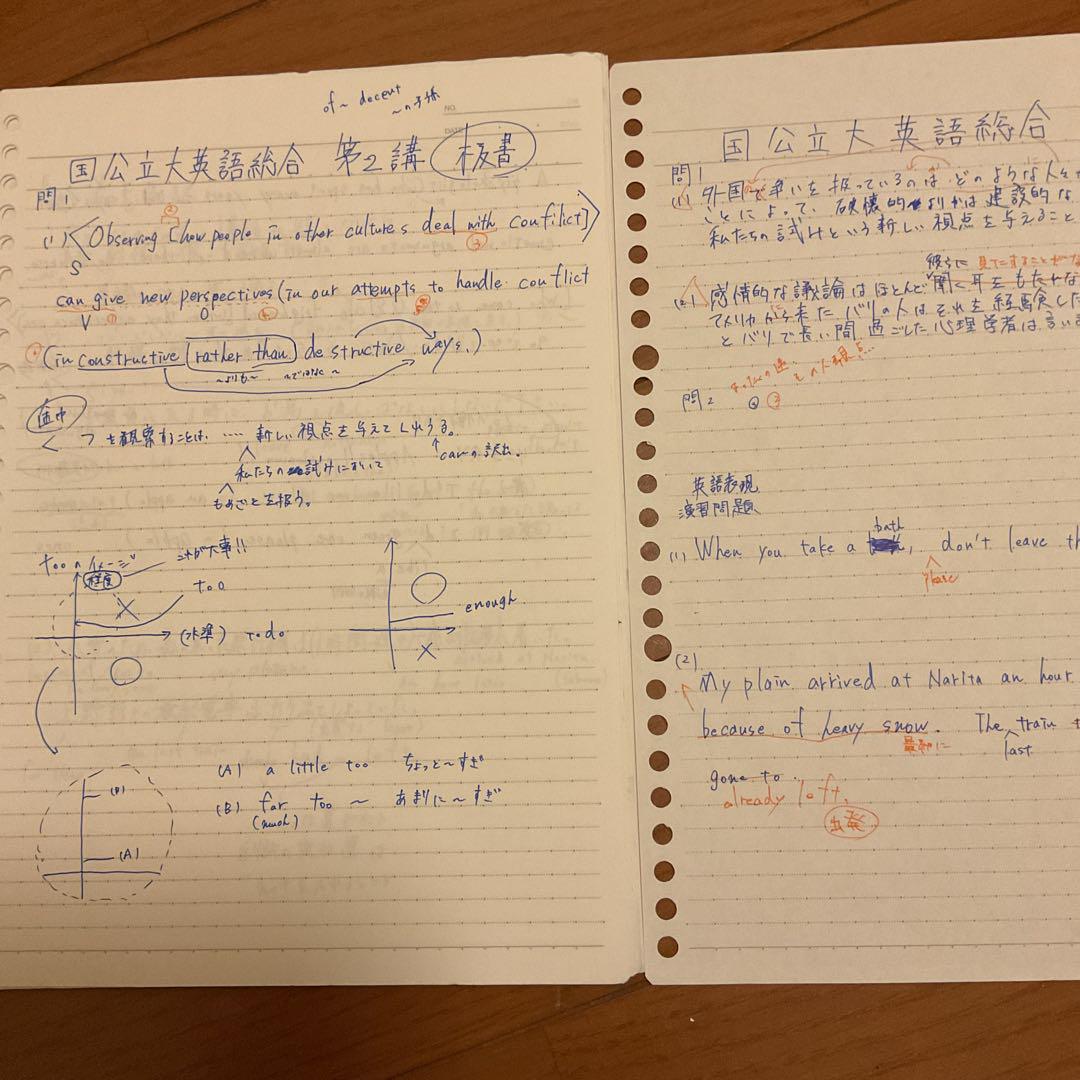 of ~ decent
~の子孫
国公立大英語総合 第2講 板書
問1
(1) Observing how people in other cultures deal with confilict
S
② ③
can give new perspectives (in our attempts to handle conflict
V ① O ④
(in constructive rather than destructive ways.)
~よりも~ ~ではなく~
直中
フを観察することは、…. 新しい視点を与えてくれうる。
私たちの試みにおいて
canの訳出。
もめごとを扱う。
tooのイメージ
これが大事!!
程度
too
(水準) to do
enough
(A) a little too ちょっと~すぎ
(B) far too ~ あまりに~すぎ
(much)
(B)
(A)
国公立大英語総合
問1
(1) 外国で争いを扱っているのは、どのような人々
ことによって、破壊的よりかは建設的な
私たちの試みという新しい視点を与えること
彼らに
(2) 感情的な議論はほとんど聞く耳をもたない
アメリカから来たバリの人はそれを経験した
とバリで長い間過ごした心理学者は言い
問2
② ③
英語表現
演習問題
bath
(1) When you take a , don't leave th
(2)
My plain arrived at Narita an hour
because of heavy snow. The train
最初に last
gone to.
already left.
出発